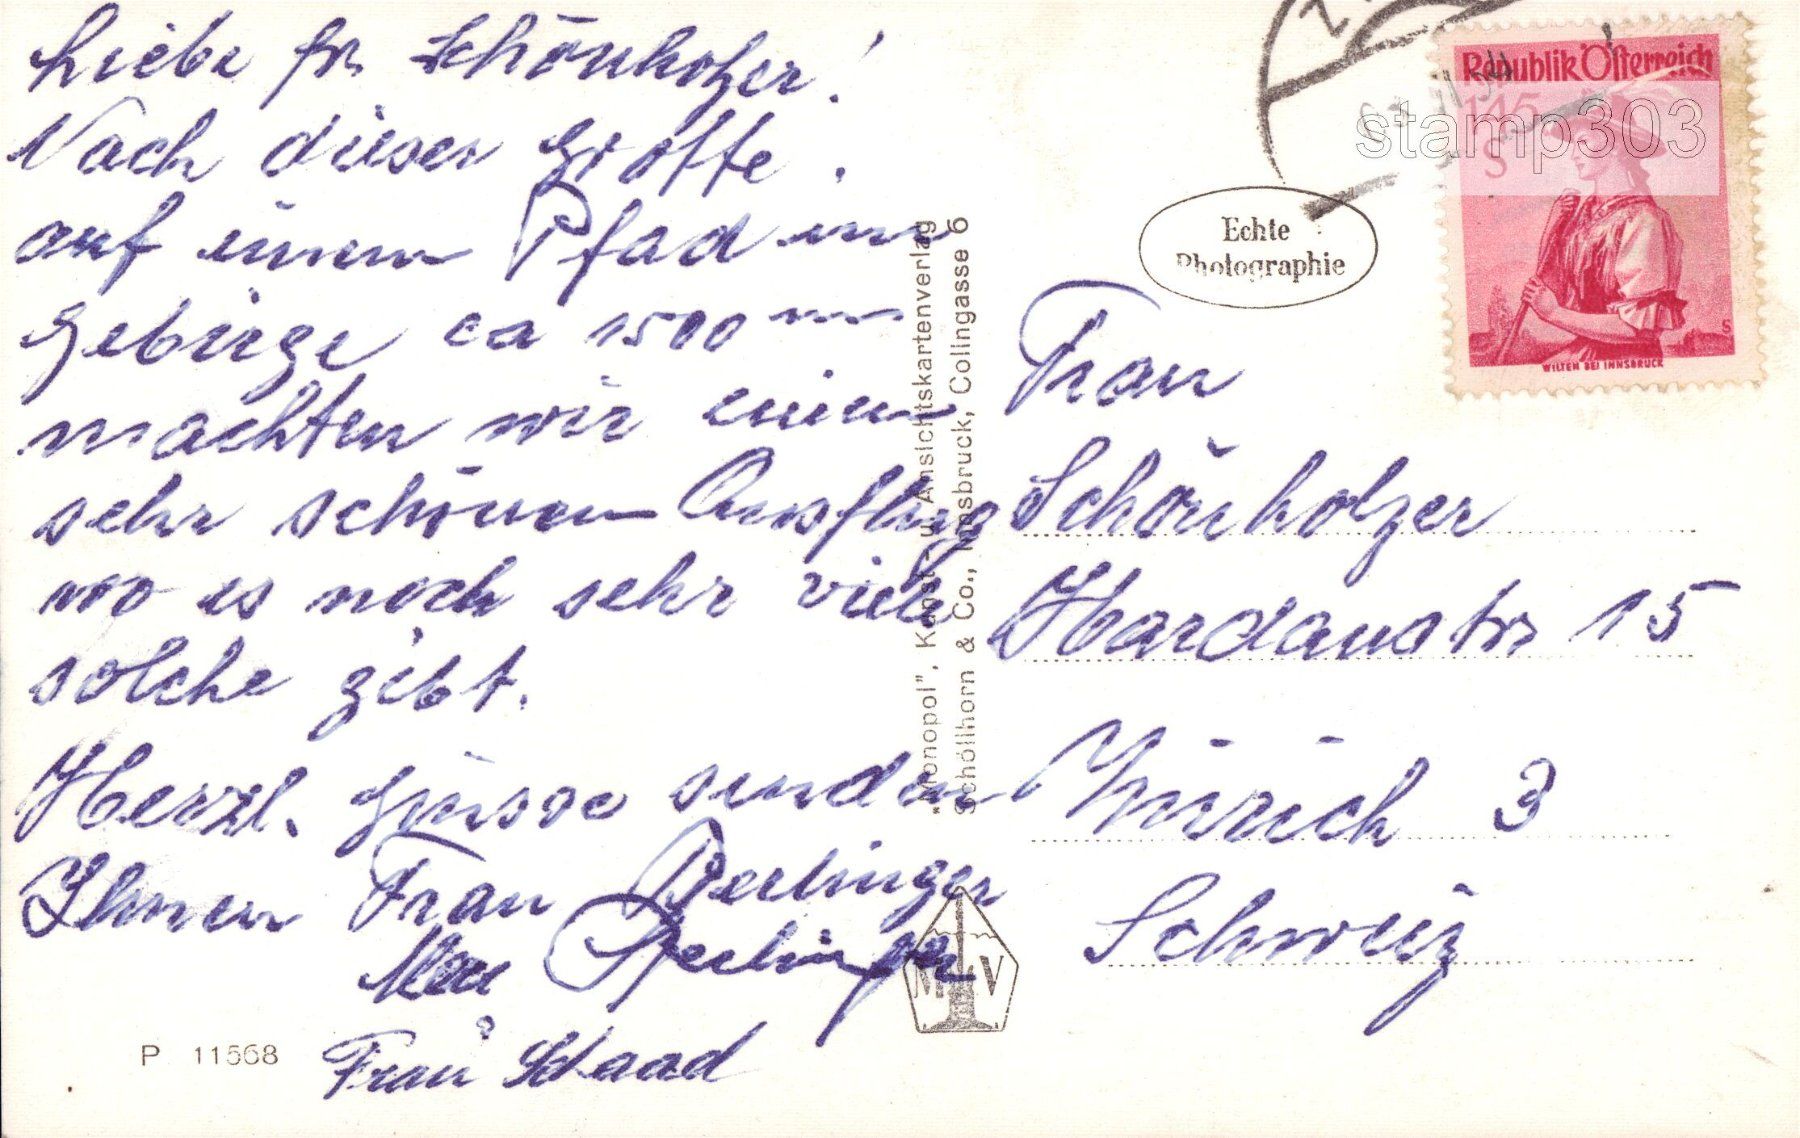 Liebe Fr. Schönholzer!
Nach dieser Grotte.
auf einem Pfad im
Gebirge ca 1500 m
machten wir einen
sehr schönen Ausflug
wo es noch sehr viele
solche gibt.
Herzl. Grüsse senden
Ihnen Frau Berlinger
Berlinger
Frau Staad
P 11568
"Monopol", Kunst- u. Ansichtskartenverlag
Schöllhorn & Co., Innsbruck, Collingasse 6
Echte
Photographie
Republik Österreich
1.45
S
WILTEN BEI INNSBRUCK
S
stamp303
Frau
Schönholzer
Hardaustr 15
Zürich 3
Schweiz